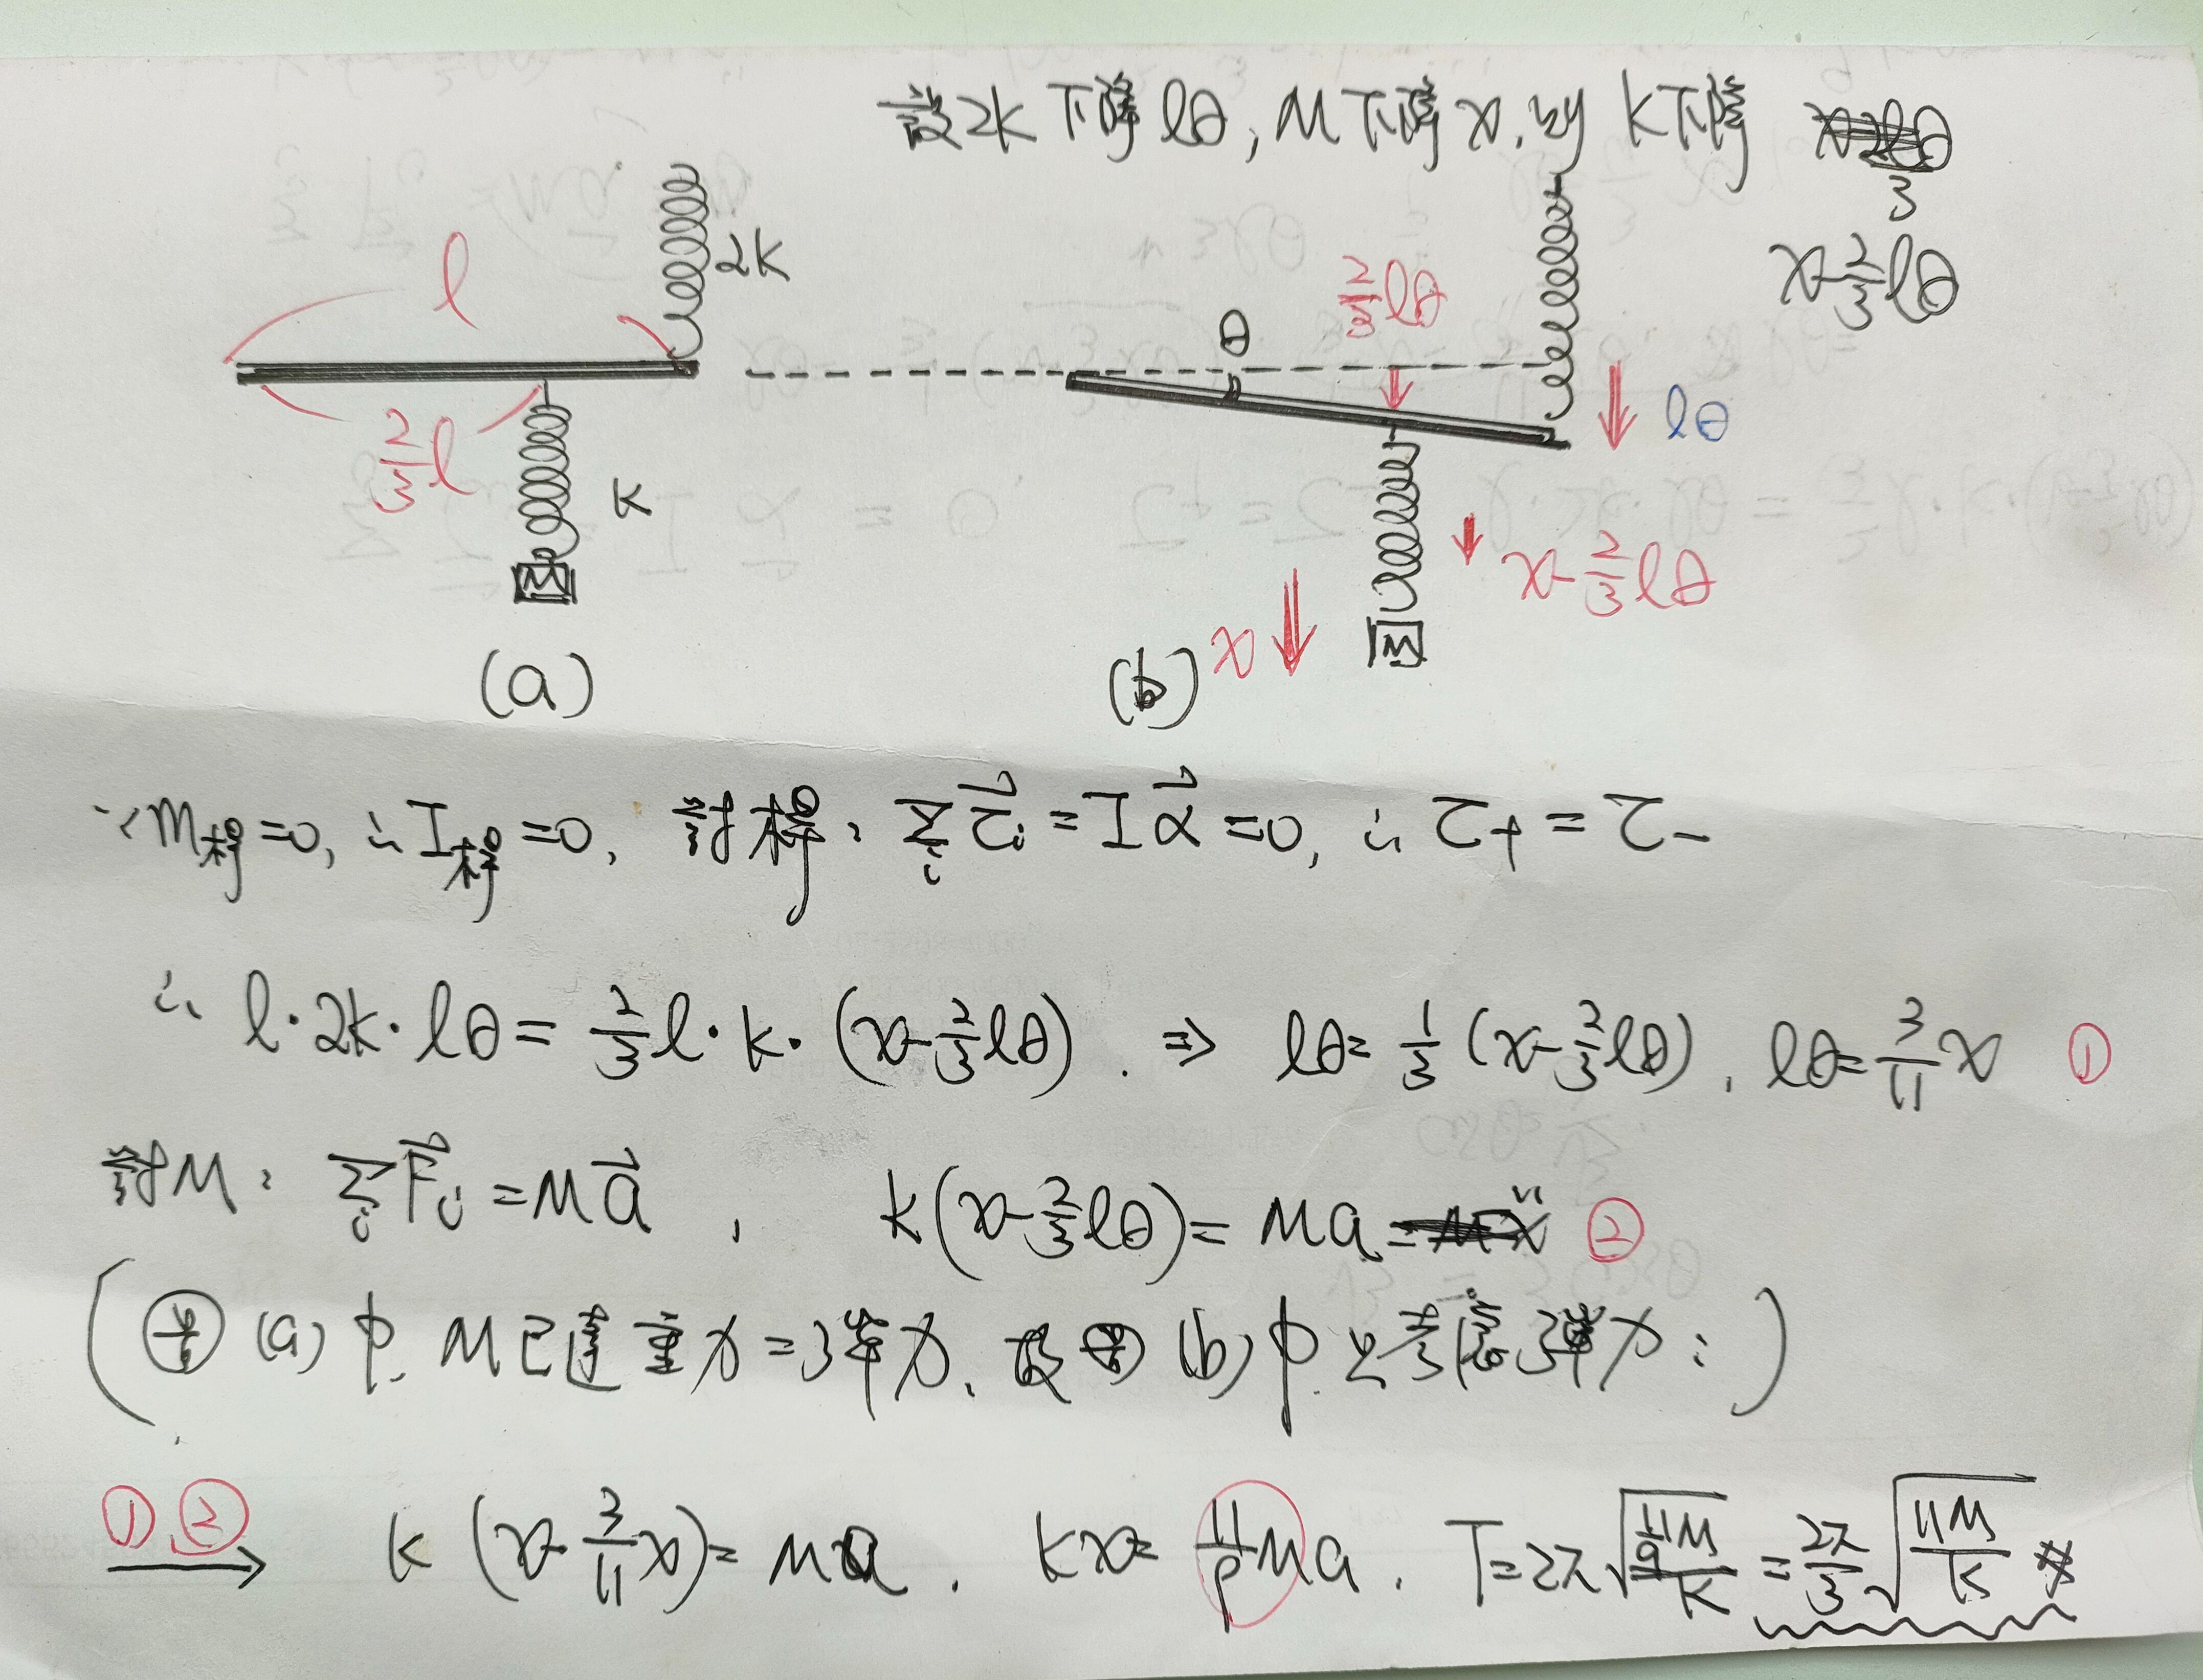 設2k下降lθ, M下降x, 則 k下降
x-⅔lθ
l
2k
⅔l
k
M
(a)
θ
⅔lθ
lθ
x-⅔lθ
x
M
(b)
∵m桿=0, ∴I桿=0, 對桿: Σᵢ τ⃗ᵢ = Iα⃗ =0, ∴ τ+ = τ−
∴ l·2k·lθ = ⅔l·k·(x-⅔lθ). ⇒ lθ= ⅓(x-⅔lθ), lθ= 3/11 x ①
對M: Σᵢ F⃗ᵢ = Ma⃗, k(x-⅔lθ)= Ma ②
(圖(a)中, M已達重力=彈力, 故圖(b)中只考慮彈力:)
①,② → k(x- 3/11 x)= Ma. kx= 11/9 Ma. T=2π√((11/9 M)/k) = 2π/3 √(11M/k) #